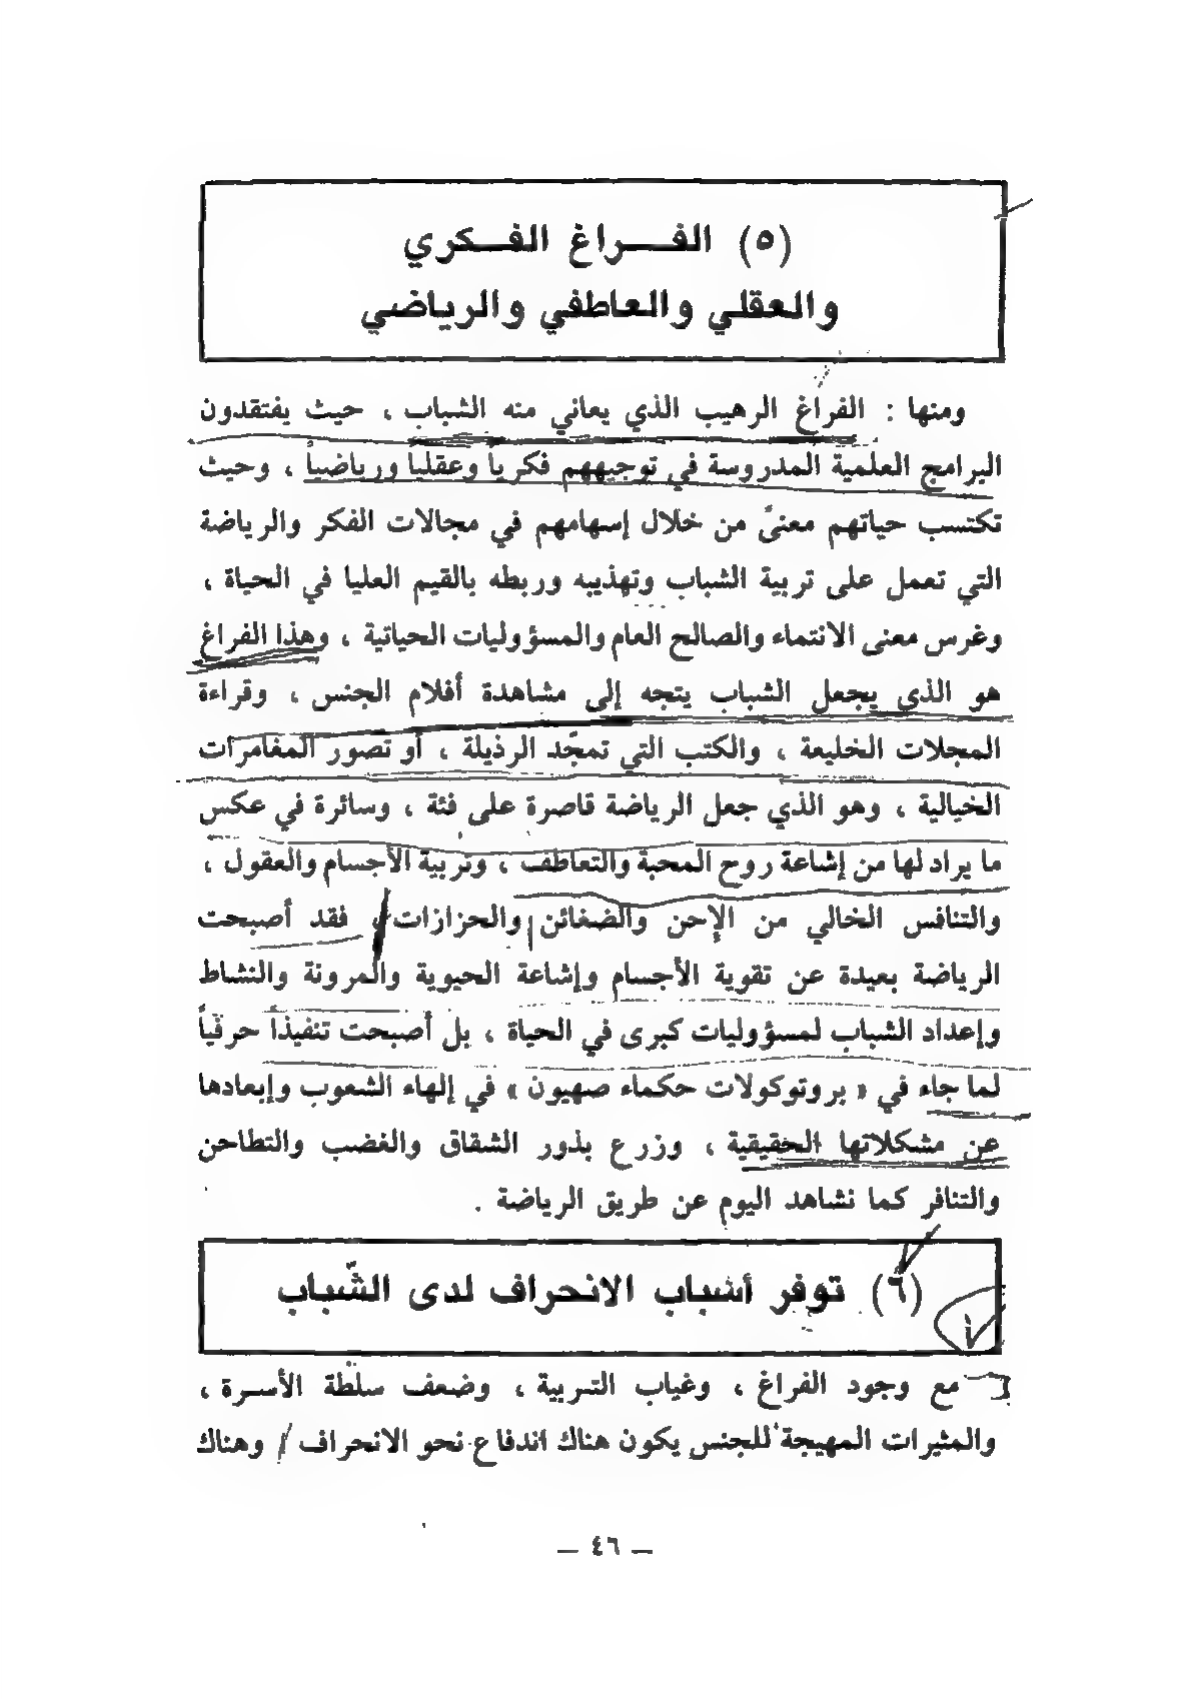 (٥) الفـــراغ الفـــكري
والعقلي والعاطفي والرياضي
ومنها : الفراغ الرهيب الذي يعاني منه الشباب ، حيث يفتقدون
البرامج العلمية المدروسة في توجيههم فكرياً وعقلياً ورياضياً ، وحيث
تكتسب حياتهم معنىً من خلال إسهامهم في مجالات الفكر والرياضة
التي تعمل على تربية الشباب وتهذيبه وربطه بالقيم العليا في الحياة ،
وغرس معنى الانتماء والصالح العام والمسؤوليات الحياتية ، وهذا الفراغ
هو الذي يجعل الشباب يتجه إلى مشاهدة أفلام الجنس ، وقراءة
المجلات الخليعة ، والكتب التي تمجّد الرذيلة ، أو تصور المغامرات
الخيالية ، وهو الذي جعل الرياضة قاصرة على فئة ، وسائرة في عكس
ما يراد لها من إشاعة روح المحبة والتعاطف ، وتربية الأجسام والعقول ،
والتنافس الخالي من الإحن والضغائن والحزازات ، فقد أصبحت
الرياضة بعيدة عن تقوية الأجسام وإشاعة الحيوية والمرونة والنشاط
وإعداد الشباب لمسؤوليات كبرى في الحياة ، بل أصبحت تنفيذاً حرفياً
لما جاء في « بروتوكولات حكماء صهيون » في إلهاء الشعوب وإبعادها
عن مشكلاتها الحقيقية ، وزرع بذور الشقاق والغضب والتطاحن
والتنافر كما نشاهد اليوم عن طريق الرياضة .
(٦) توفر أسباب الانحراف لدى الشّباب
مع وجود الفراغ ، وغياب التربية ، وضعف سلطة الأسرة ،
والمثيرات المهيجة للجنس يكون هناك اندفاع نحو الانحراف ، وهناك
— ٤٦ —